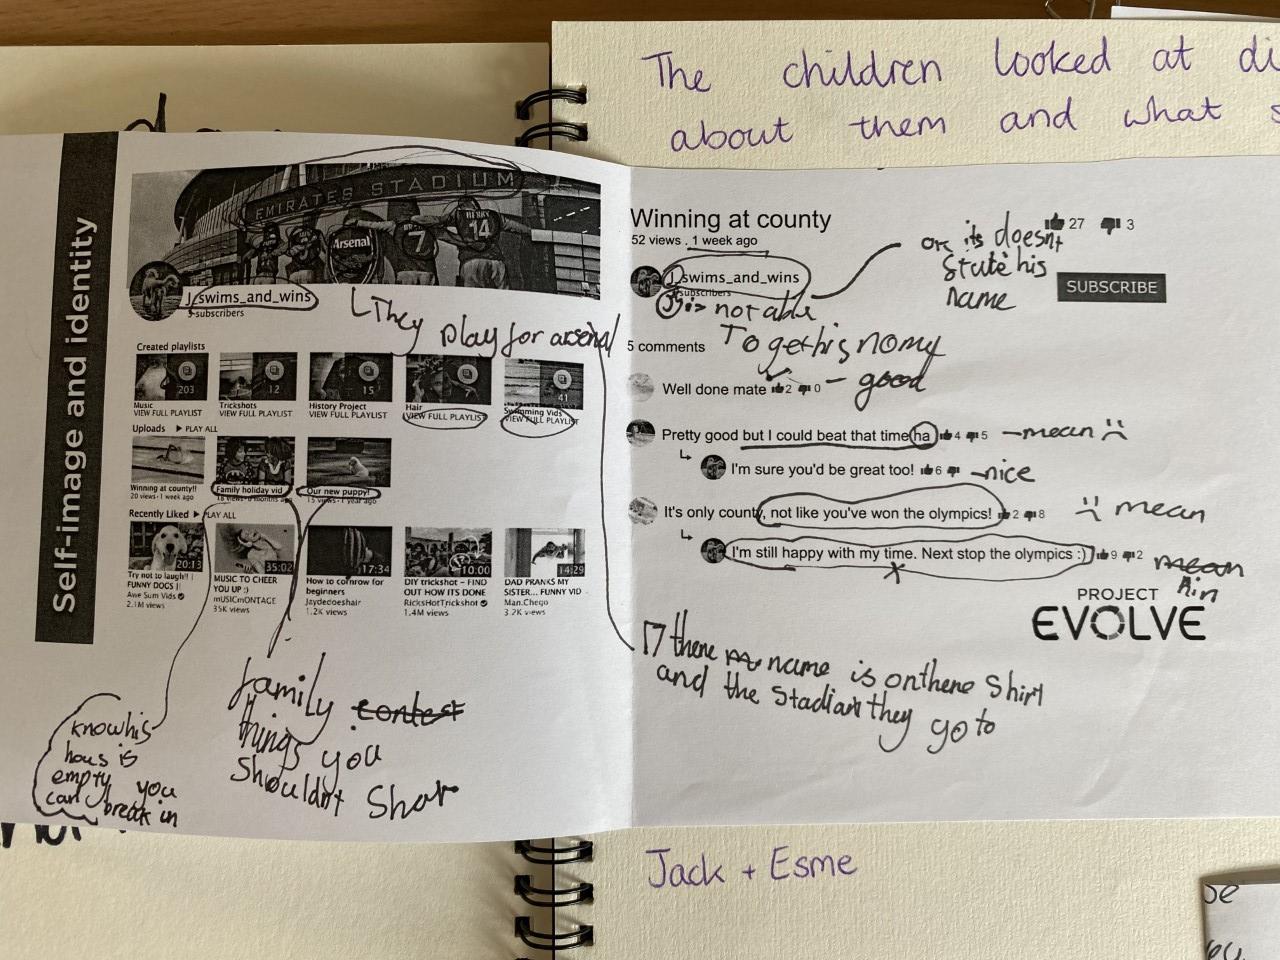 The children looked at di
about them and what s
Self-image and identity
EMIRATES STADIUM
Arsenal
7
HENRY
14
J_swims_and_wins
3 subscribers
They play for arsenal
Created playlists
203
12
15
7
41
Music
Trickshots
History Project
Hair
Swimming Vids
VIEW FULL PLAYLIST
VIEW FULL PLAYLIST
VIEW FULL PLAYLIST
VIEW FULL PLAYLIST
VIEW FULL PLAYLIST
Uploads ▶ PLAY ALL
Winning at county!!
20 views · 1 week ago
Family holiday vid
18 views · 6 months ago
Our new puppy!
15 views · 1 year ago
Recently Liked ▶ PLAY ALL
20:13
35:02
17:34
10:00
14:29
Try not to laugh!! |
FUNNY DOGS |
Awe Sum Vids
2.1M views
MUSIC TO CHEER
YOU UP :)
mUSICmONTAGE
35K views
How to cornrow for
beginners
Jaydedoeshair
1.2K views
DIY trickshot – FIND
OUT HOW ITS DONE
RicksHotTrickshot
1.4M views
DAD PRANKS MY
SISTER... FUNNY VID
Man.Chego
3.2K views
family contest
things you
shouldn't Shar
know his
hous is
empty you
can break in
Winning at county
52 views . 1 week ago
27
3
J_swims_and_wins
subscribers
SUBSCRIBE
its doesnt
state his
name
is not able
To get his
5 comments
Well done mate 2 0 – good
Pretty good but I could beat that time ha 4 5 – mean
I'm sure you'd be great too! 6 – nice
It's only county, not like you've won the olympics! 2 8 mean
I'm still happy with my time. Next stop the olympics :) 9 2 mean
PROJECT
EVOLVE
there name is on there Shirt
and the they go to
Jack + Esme